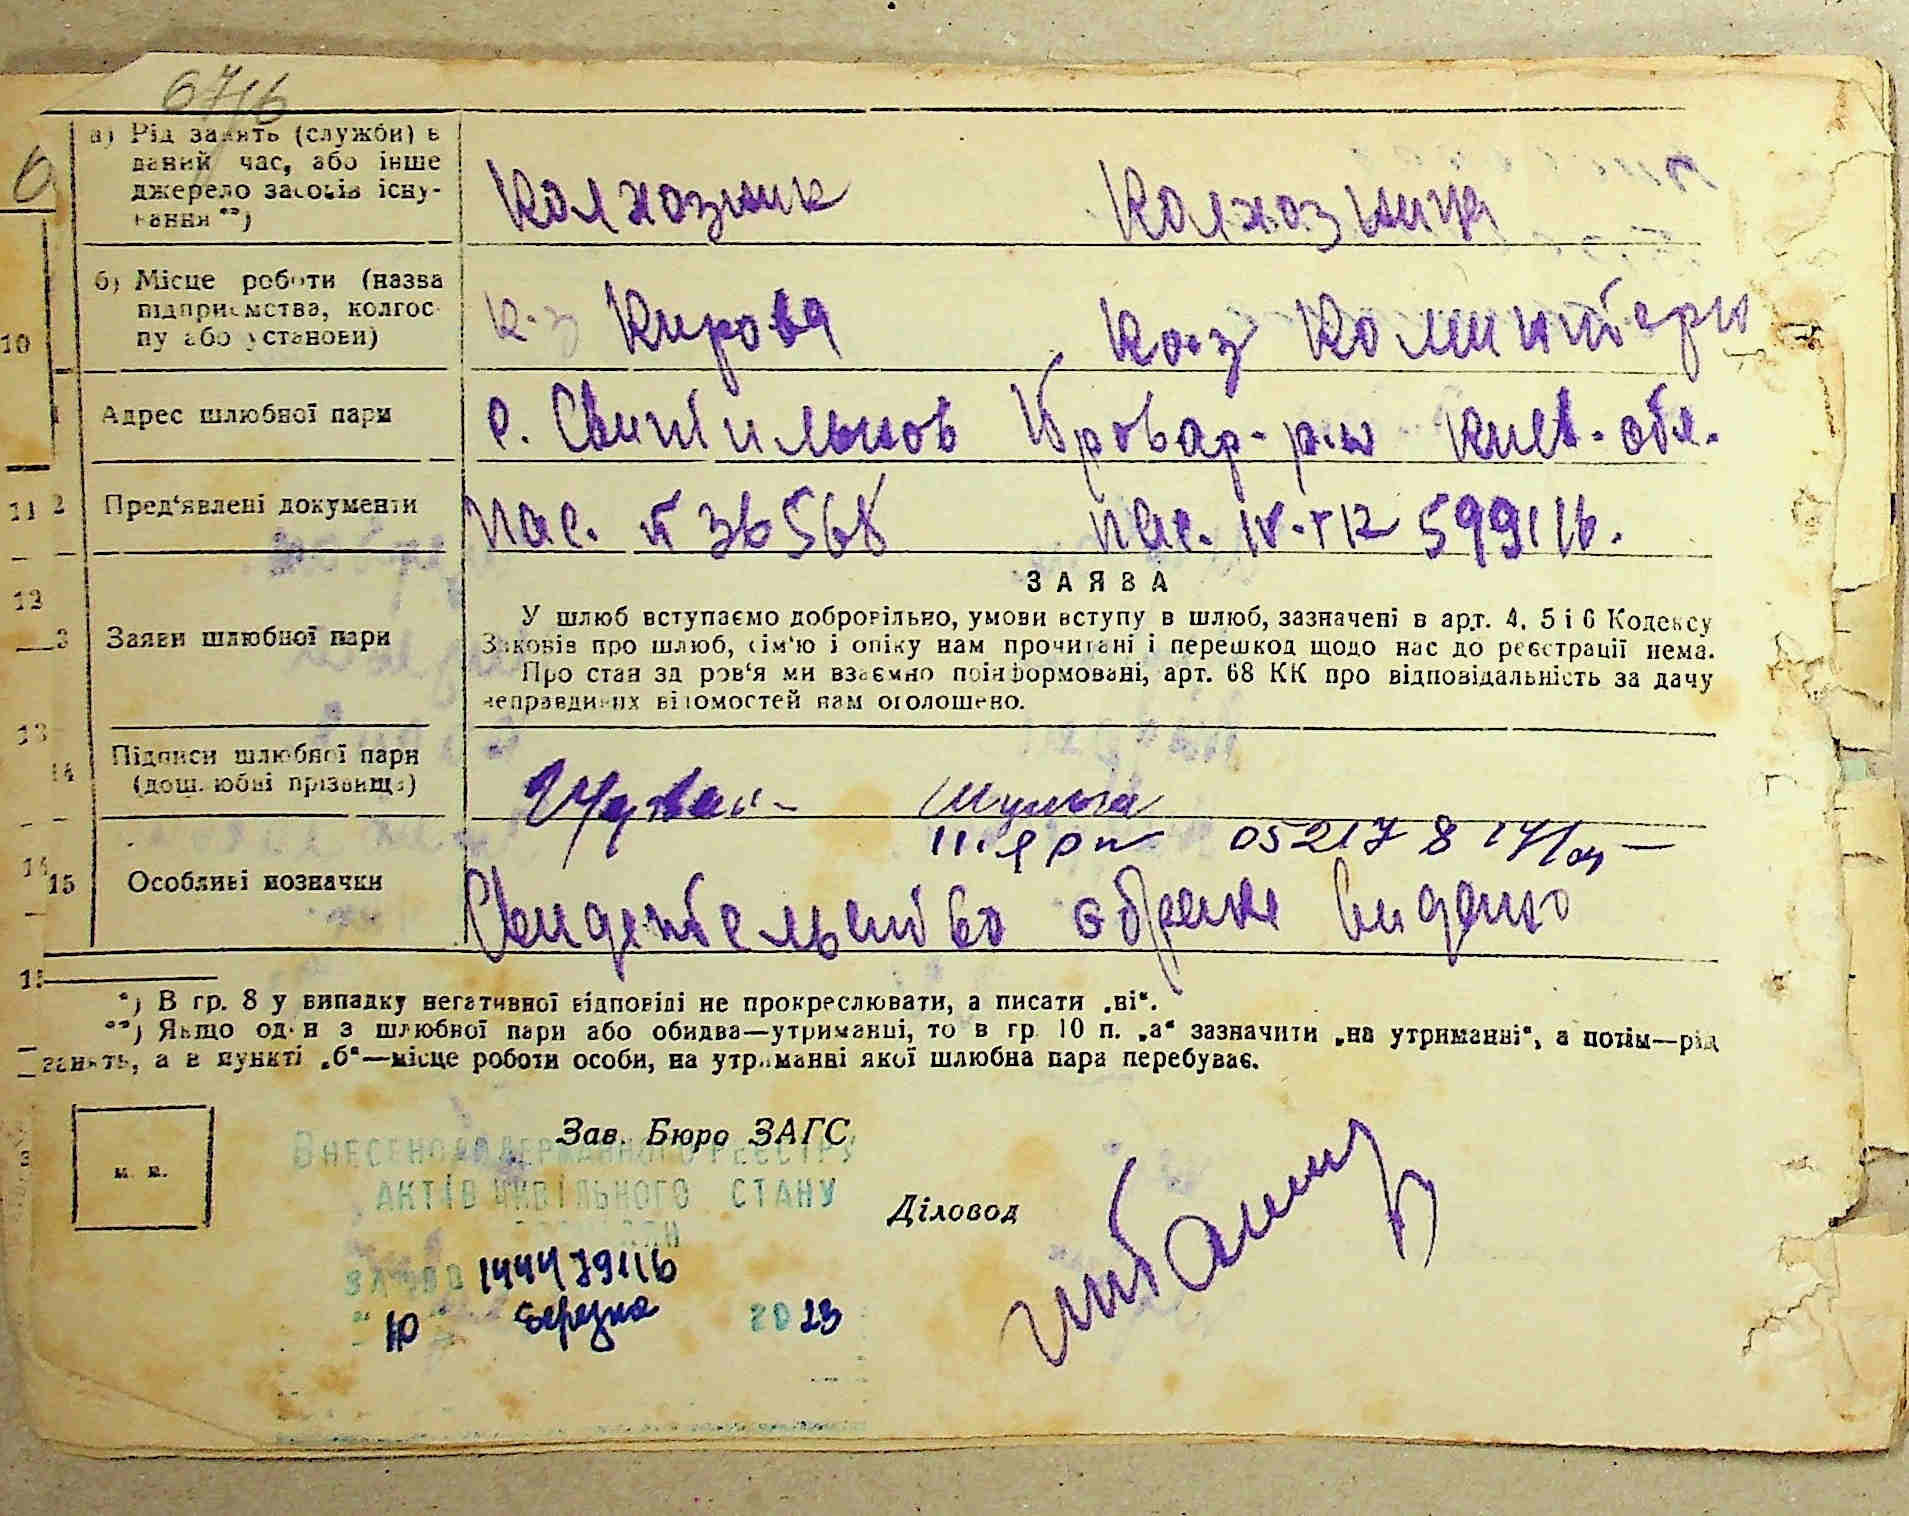 67/6
а) Рід занять (служби) в
даний час, або інше
джерело засобів існу-
вання **)
Колхозник Колхозница
б) Місце роботи (назва
підприємства, колгос-
пу або установи)
10
к-з Кирова Ко-з Коминтерн
Адрес шлюбної пари
с. Свитильнов Бровар. р-н Киев. обл.
11 2 Пред'явлені документи
пас. № 36568 пас. IV-ТК 599116.
12
3 Заяви шлюбної пари
ЗАЯВА
У шлюб вступаємо добровільно, умови вступу в шлюб, зазначені в арт. 4, 5 і 6 Кодексу
Законів про шлюб, сім'ю і опіку нам прочитані і перешкод щодо нас до реєстрації нема.
Про стан здоров'я ми взаємно поінформовані, арт. 68 КК про відповідальність за дачу
неправдивих відомостей нам оголошено.
13
14 Підписи шлюбної пари
(дошлюбні прізвища)
Шульга
15 Особливі позначки
052178
Свидетельство о браке видано
*) В гр. 8 у випадку негативної відповіді не прокреслювати, а писати „ні“.
**) Якщо один з шлюбної пари або обидва—утриманці, то в гр. 10 п. „а“ зазначити „на утриманні“, а потім—рід
занять, а в пункті „б“—місце роботи особи, на утриманні якої шлюбна пара перебуває.
м. п.
Зав. Бюро ЗАГС
ВНЕСЕНО ДО ДЕРЖАВНОГО РЕЄСТРУ
АКТІВ ЦИВІЛЬНОГО СТАНУ
Діловод
144479116
"10" березня 2023